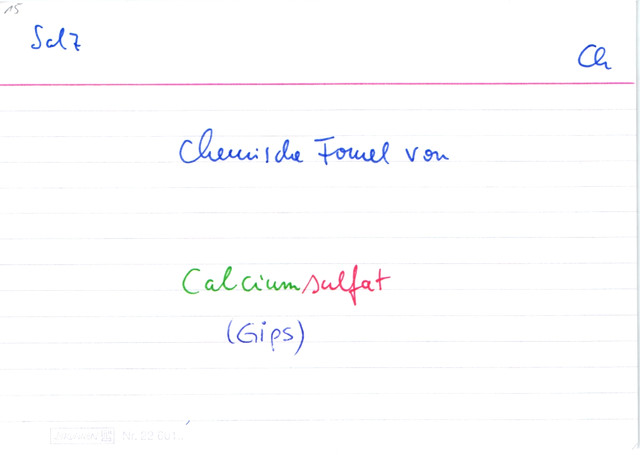 15
Salz
Ch
Chemische Formel von
Calciumsulfat
(Gips)